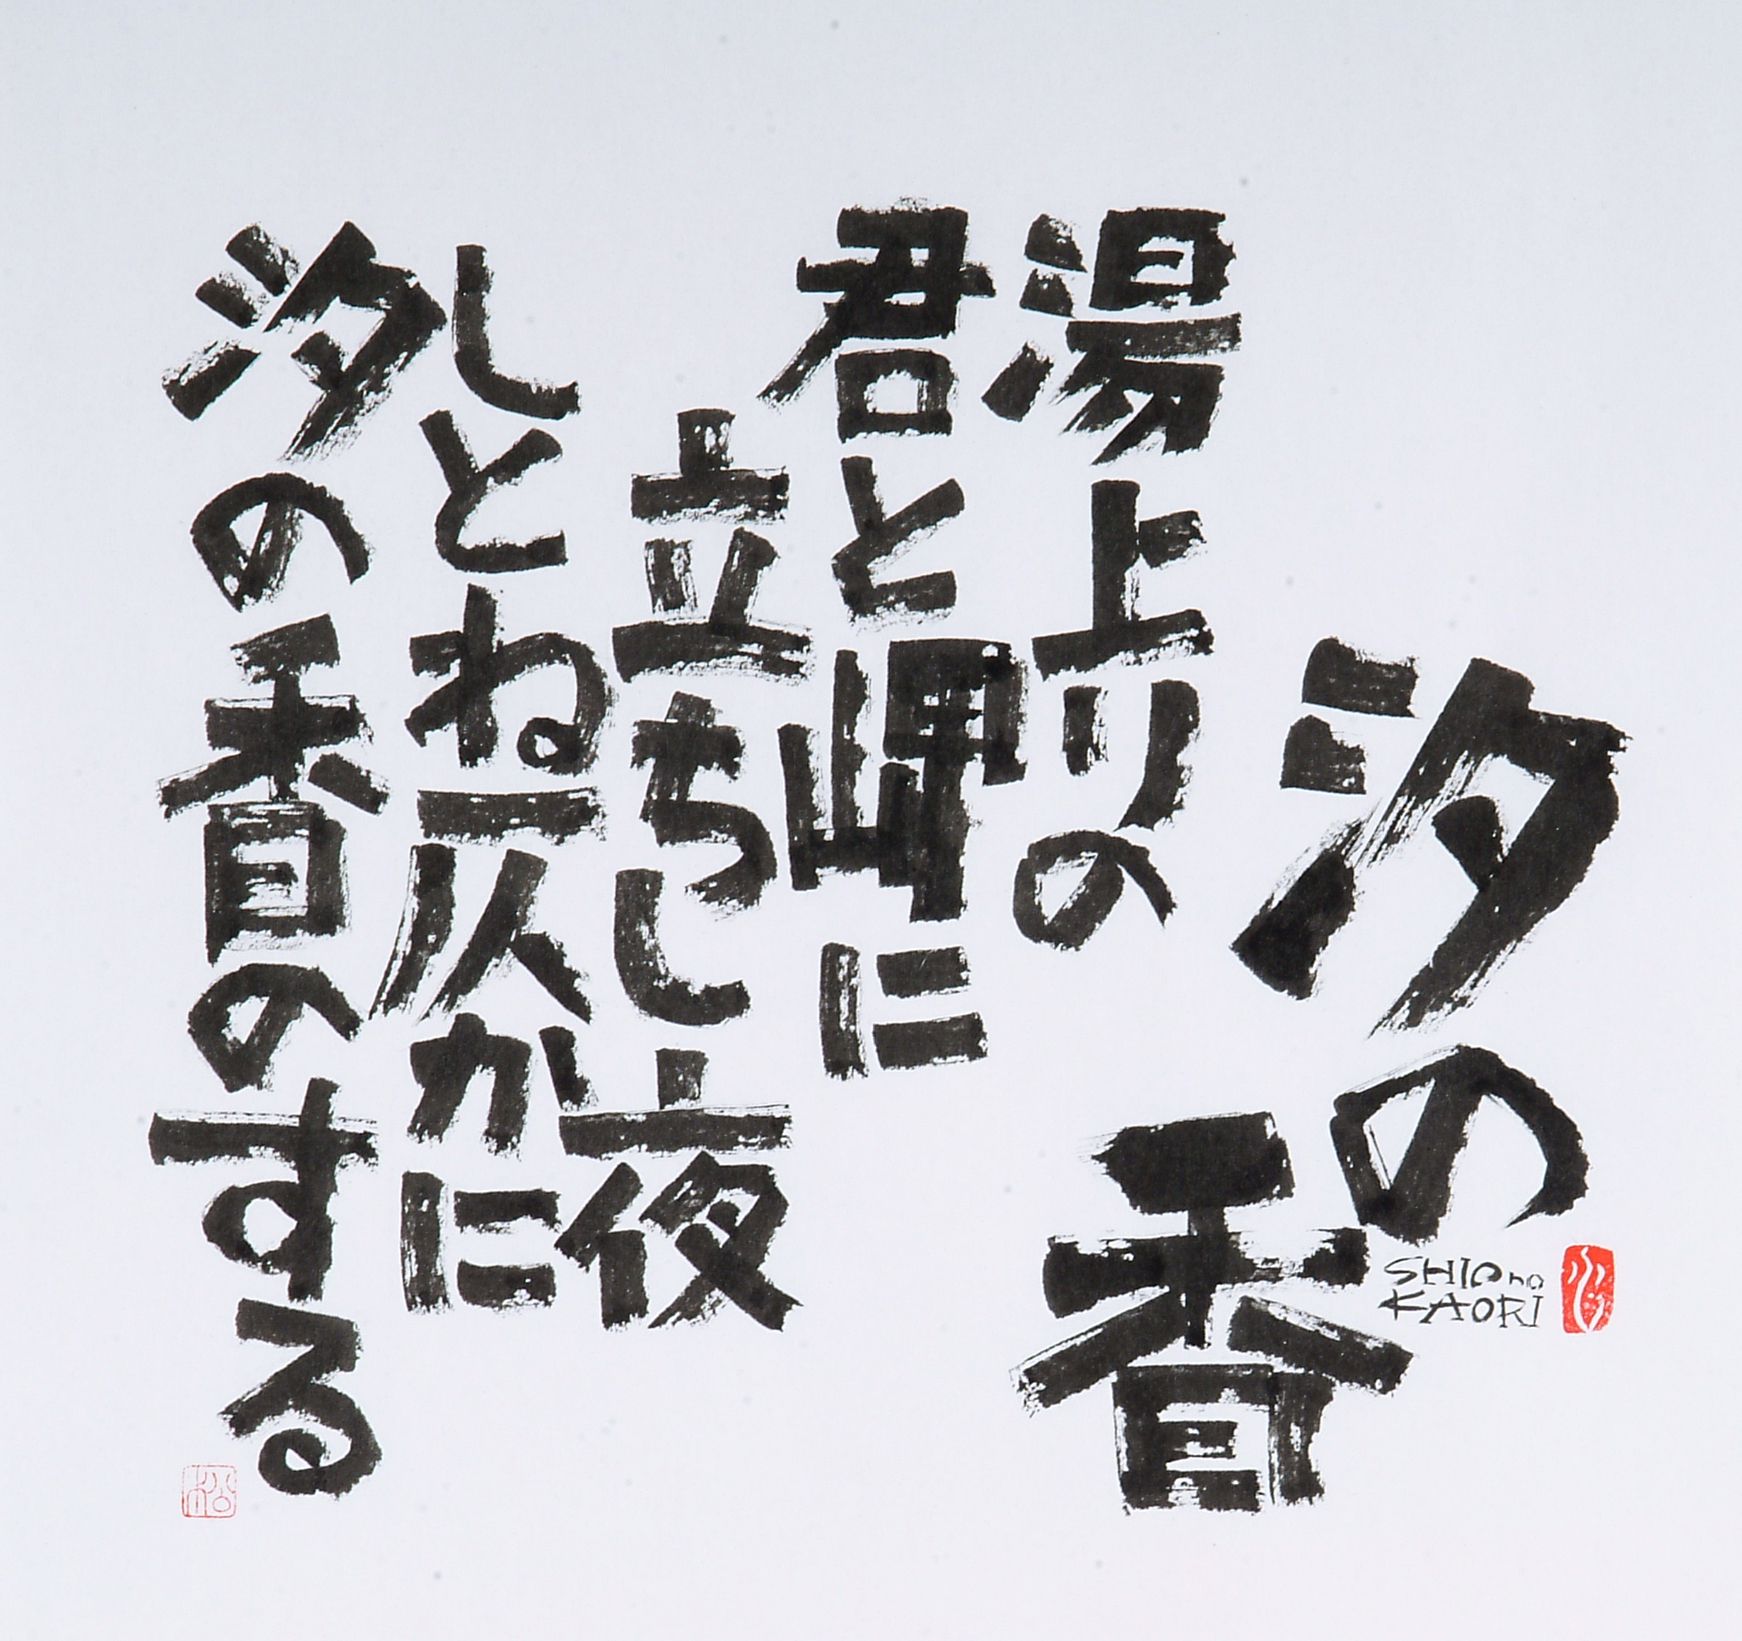 汐の香
SHIO no
KAORI
湯上りの
君と岬に
立ちし夜
しとね仄かに
汐の香のする